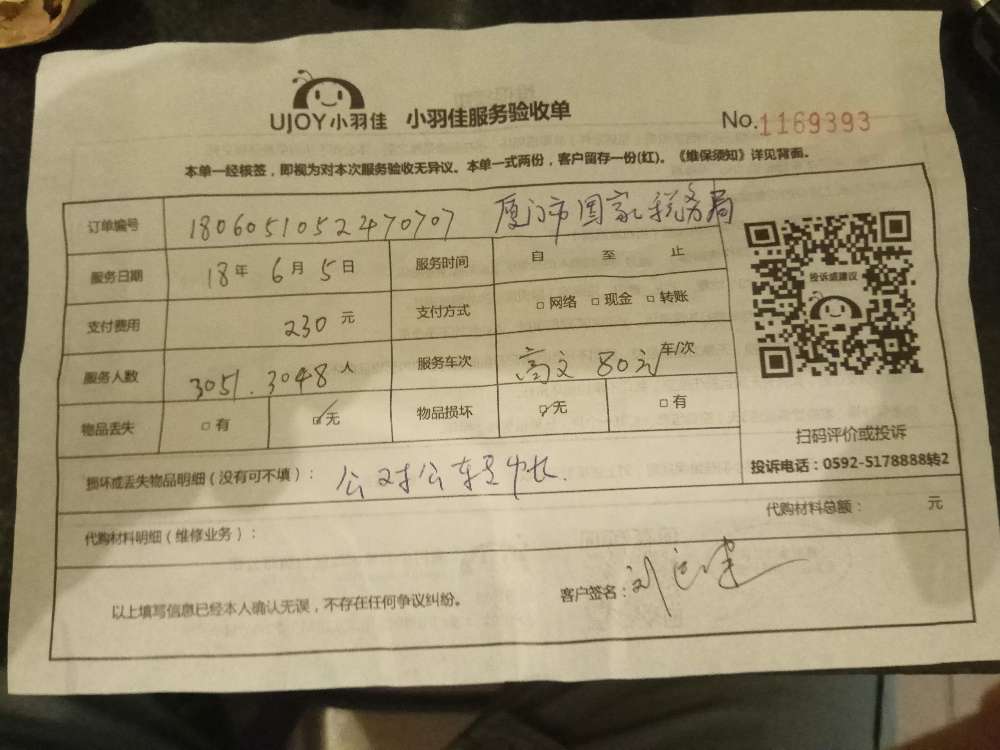 UJOY小羽佳 小羽佳服务验收单 No.1169393
本单一经核签，即视为对本次服务验收无异议。本单一式两份，客户留存一份(红)。《维保须知》详见背面。
订单编号 1806051052470707 厦门市国家税务局
服务日期 18年6月5日 服务时间 自 至 止
投诉或建议
支付费用 230元 支付方式 □网络 □现金 □转账
服务人数 3051.3048人 服务车次 80元 车/次
物品丢失 □有 ☑无 物品损坏 ☑无 □有
扫码评价或投诉
投诉电话：0592-5178888转2
损坏或丢失物品明细（没有可不填）： 公对公
代购材料明细（维修业务）： 代购材料总额： 元
以上填写信息已经本人确认无误，不存在任何争议纠纷。 客户签名：刘